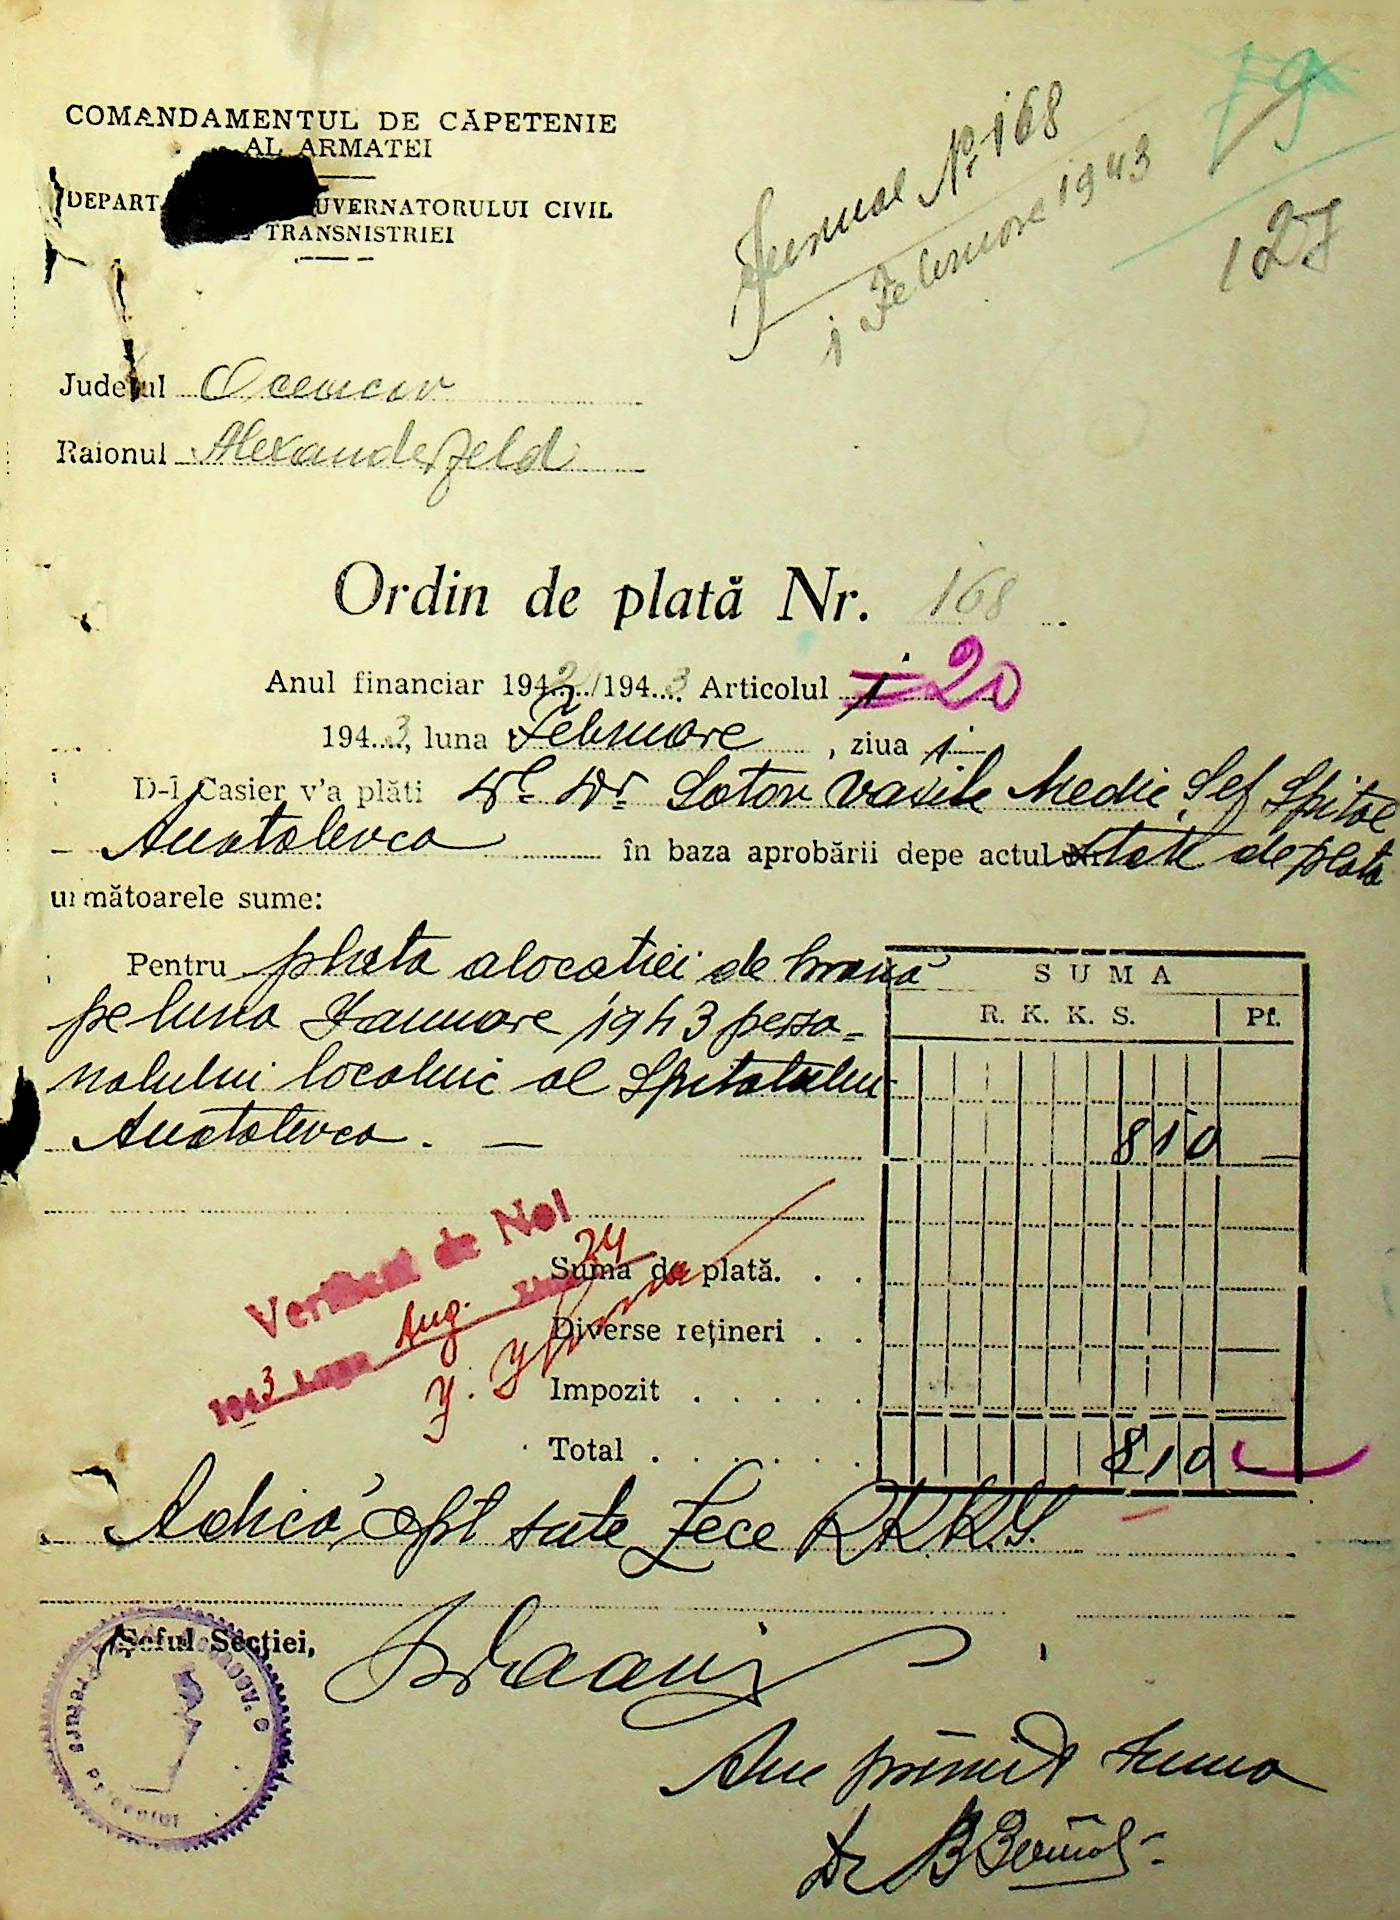 COMANDAMENTUL DE CĂPETENIE
AL ARMATEI
DEPART UVERNATORULUI CIVIL
TRANSNISTRIEI
Jurnal Nr. 168
1 Februare 1943
19
127
Judeţul Oceacov
Raionul Alexanderfeld
Ordin de plată Nr. 168
Anul financiar 1942/1943 Articolul 1 20
1943, luna Februare, ziua 1
D-l Casier v'a plăti Dl. Dr. Sotov Vasile Medic Şef Spital
Anatolevca în baza aprobării depe actul Nr. State de plata
următoarele sume:
Pentru plata alocatiei de hrană
pe luna Januare 1943 perso-
nalului localnic al Spitalului
Anatolevca. —
SUMA
R. K. K. S. Pf.
810 —
Verificat de Noi
1943 Luna Aug. Ziua 24
Suma de plată. . .
Diverse reţineri . .
Impozit . . . . .
Total . . . . . . 810 —
Adică, opt sute zece R.K.K.S.
Şeful Secţiei,
Am primit suma
Dr